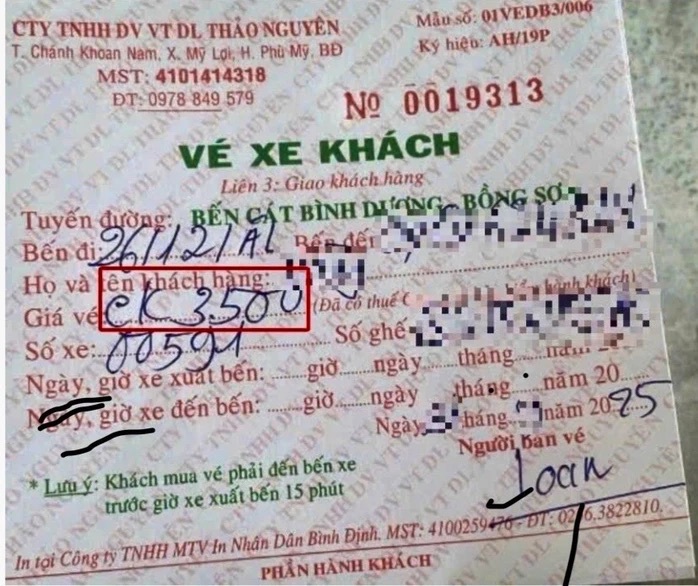 CTY TNHH DV VT DL THẢO NGUYÊN
T. Chánh Khoan Nam, X. Mỹ Lợi, H. Phù Mỹ, BĐ
MST: 4101414318
ĐT: 0978 849 579
Mẫu số: 01VEDB3/006
Ký hiệu: AH/19P
No 0019313
VÉ XE KHÁCH
Liên 3: Giao khách hàng
Tuyến đường: BẾN CÁT BÌNH DƯƠNG - BỒNG SƠ
Bến đi: 26/12/AL Bến đến
Họ và tên khách hàng:
Giá vé CK 3.500 (Đã có thuế hành khách)
Số xe: 00591 Số ghế
Ngày, giờ xe xuất bến: ......giờ......ngày......tháng......năm 20
Ngày, giờ xe đến bến: ......giờ......ngày......tháng......năm 20
Ngày tháng năm 2025
Người bán vé
Loan
* Lưu ý: Khách mua vé phải đến bến xe
trước giờ xe xuất bến 15 phút
In tại Công ty TNHH MTV In Nhân Dân Bình Định. MST: 4100259476 - ĐT: 3822810.
PHẦN HÀNH KHÁCH